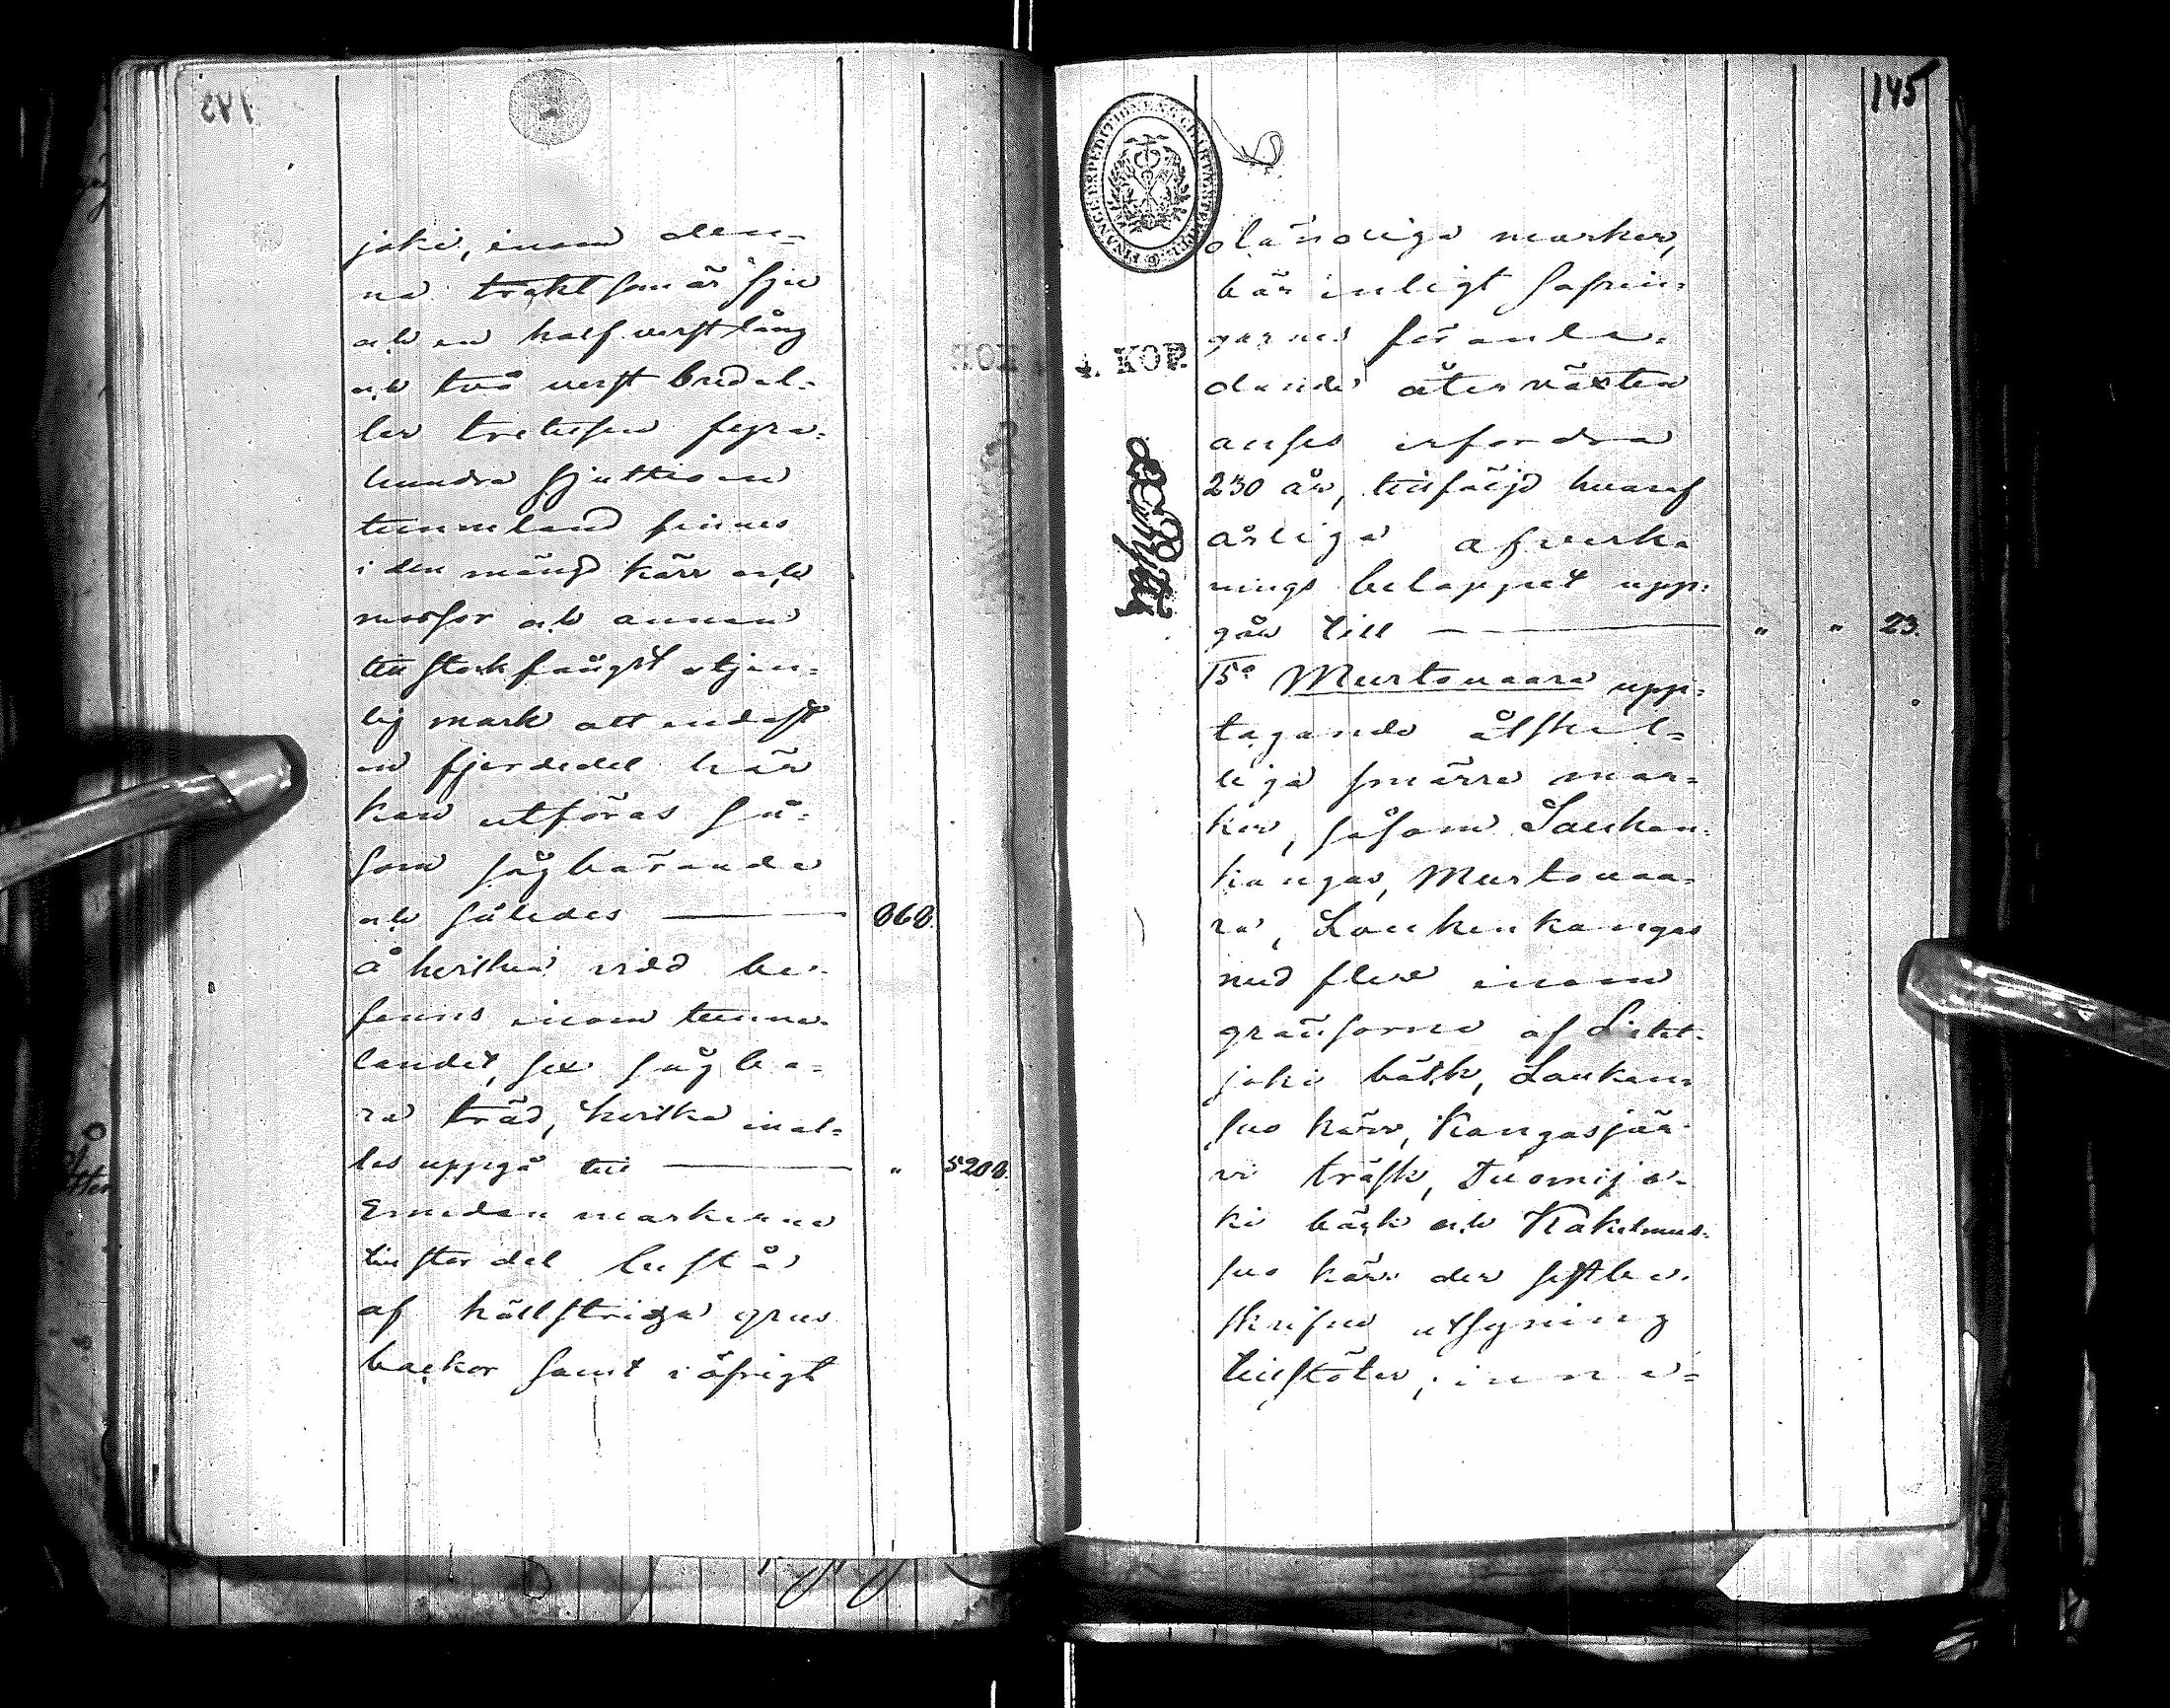 joki, inom den=
na trakt som är sju
och en half verst lång
och två verst bred el=
ler tretusen fyra=
hundra sjuttio en
tunnland finnes
i den mängd kärr och
mossor och annan
till stockfångst otjen=
lig mark att endast
en fjerdedel här
kan utföras så=
som sågbärande
och således — 868.
å hvilken vidd be=
funnes inom tunne=
landet, sex sågba=
ra träd, hvilka inal=
les uppgå till — " 5208.
Emedan markerne
till stor del bestå
af hällstriga grus
backor samt i öfrigt
145
FINANCE EXPEDITIONENS CHARTÆ
4. KOP.
oländiga marker,
här enligt
garnes föranle=
dande återväxten
anses erfordra
230 år, till följd hvaraf
årliga afverk=
nings beloppet upp=
går till — " " 23.
15o Murtovaara upp=
tagande åtskil=
liga smärre mar=
ker, såsom Laukan=
kangas, Murtovaa=
ra, Laukenkangas
med flere inom
gränsorne af
joki bäck, Laukan=
suo kärr, Kangasjär=
vi träsk, Tuomijo=
ki bäck och
suo kärr der sistbe=
skrifne utsyning
tillstöter, inne=